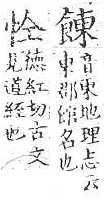 音東地理志云
東郡館名也
德紅切古文
見道經也